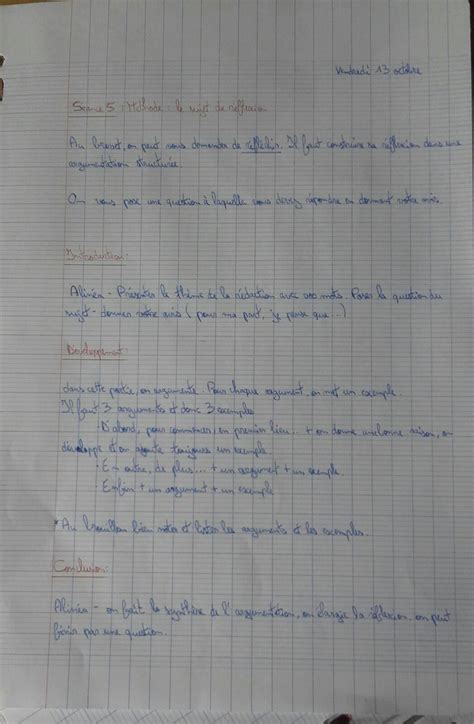 Vendredi 13 octobre
Séance 5 : Méthode : le sujet de réflexion
Au brevet, on peut vous demander de réfléchir. Il faut construire sa réflexion dans une
argumentation structurée.
On vous pose une question à laquelle vous devez répondre en donnant votre avis.
Introduction:
Alinéa - Présenter le thème de la rédaction avec vos mots. Poser la question du
sujet - donner votre avis (pour ma part, je pense que...)
Développement:
dans cette partie, on argumente. Pour chaque argument, on met un exemple.
Il faut 3 arguments et donc 3 exemples
· D'abord, pour commencer, en premier lieu... + on donne une bonne raison, on
développe et on ajoute toujours un exemple.
· En outre, de plus... + un argument + un exemple.
· Enfin + un argument + un exemple
* Au brouillon bien noter et lister les arguments et les exemples.
Conclusion:
Alinéa - on fait la synthèse de l'argumentation, on élargie la réflexion. on peut
finir par une question.